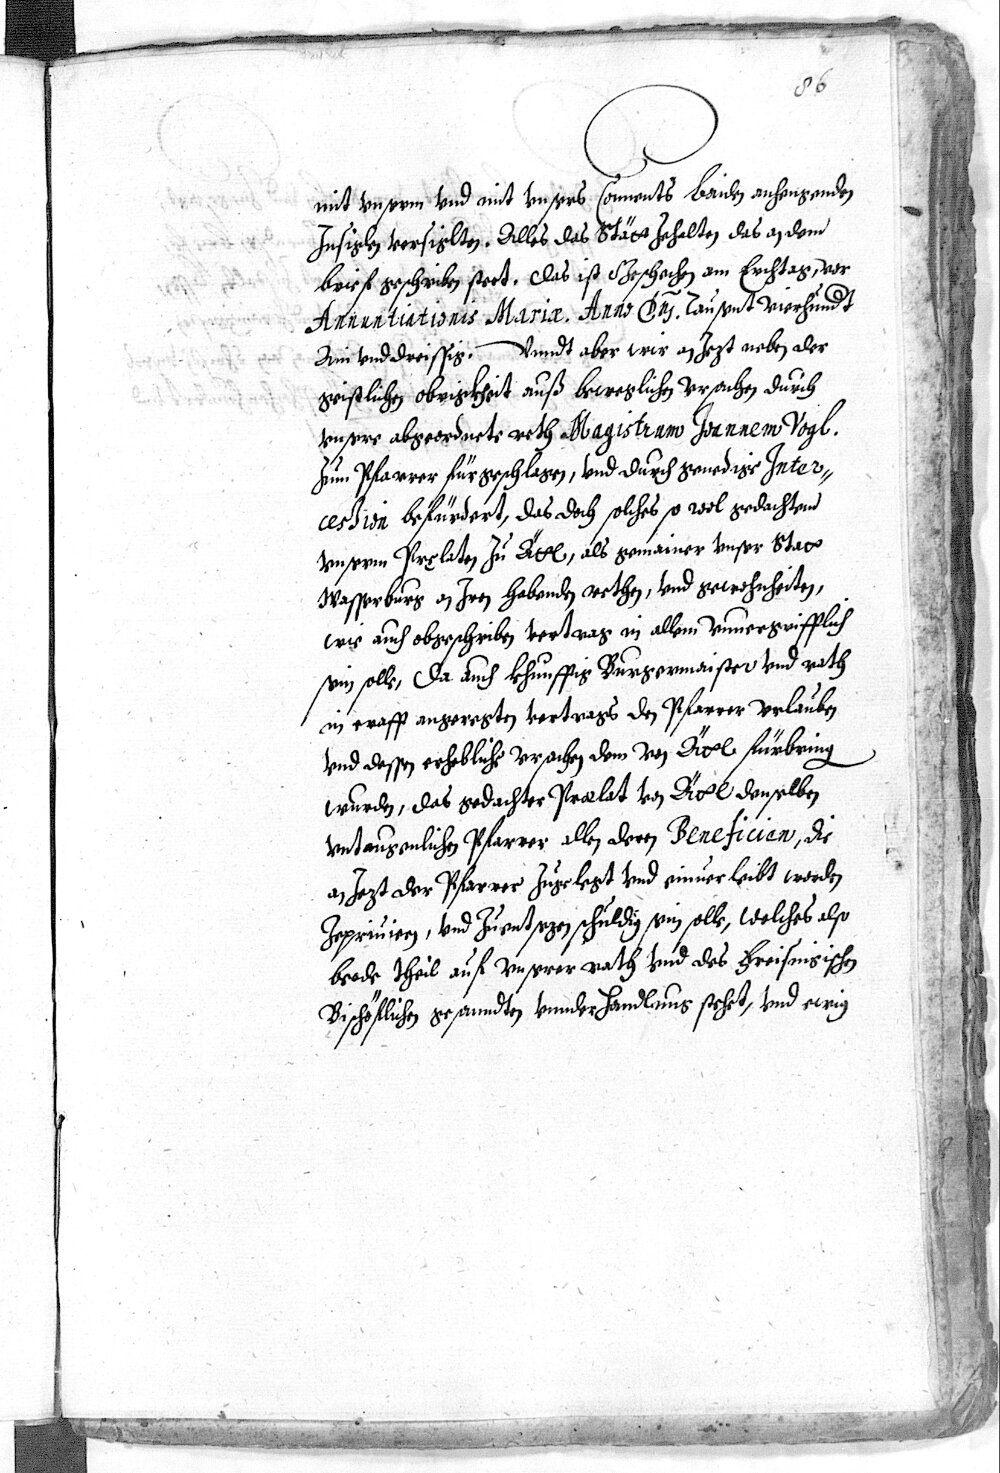 86
mit vnserm vnd mit vnsers Conuents baiden anhengenden
Insiglen versiglten. Alles das stäet Zehalten das an dem
brieff geschriben steet. Das ist Geschechen am Erchtag, vor
Annuntiationis Mariæ. Anno Dni. Tausent vierhundt
Ain vnd dreissig. Vnndt aber wir an Jezt neben der
geistlichen obrigkheit auß beweglichen vrsachen durch
vnsere abgeordnete reth Magistrum Joannem Vogl.
Zum Pfarrer fürgeschlagen, vnd durch genedige Inter„
cession befürdert, das doch solches so wol gedachtem
vnserm Prelaten Zu Ätl, als gemainer vnser Stat
Wasserburg an Iren habenden rethen, vnd gewohnheiten,
wie auch obgeschriben vertrag in allem vnuergrifflich
sein solle, Da auch khunfftig Burgermaister vnd rath
in crafft angeregten vertrags den Pfarrer vrlauben
vnd dessen erhebliche vrsachen dem von Ätl fürbring
wurden, das gedachter Prælat von Ätl denselben
vntaugenlichen Pfarrer allen deren Beneficien, die
an Jezt der Pfarrer Zugelegt vnd einuerleibt worden
Zepriuiern, vnd Zuentsezen schuldig sein solle, welches also
beede theil auf vnserer rath vnd des Freisingischen
Bischöfflichen gesanndten vnnderhandlung stehet, vnd ewig